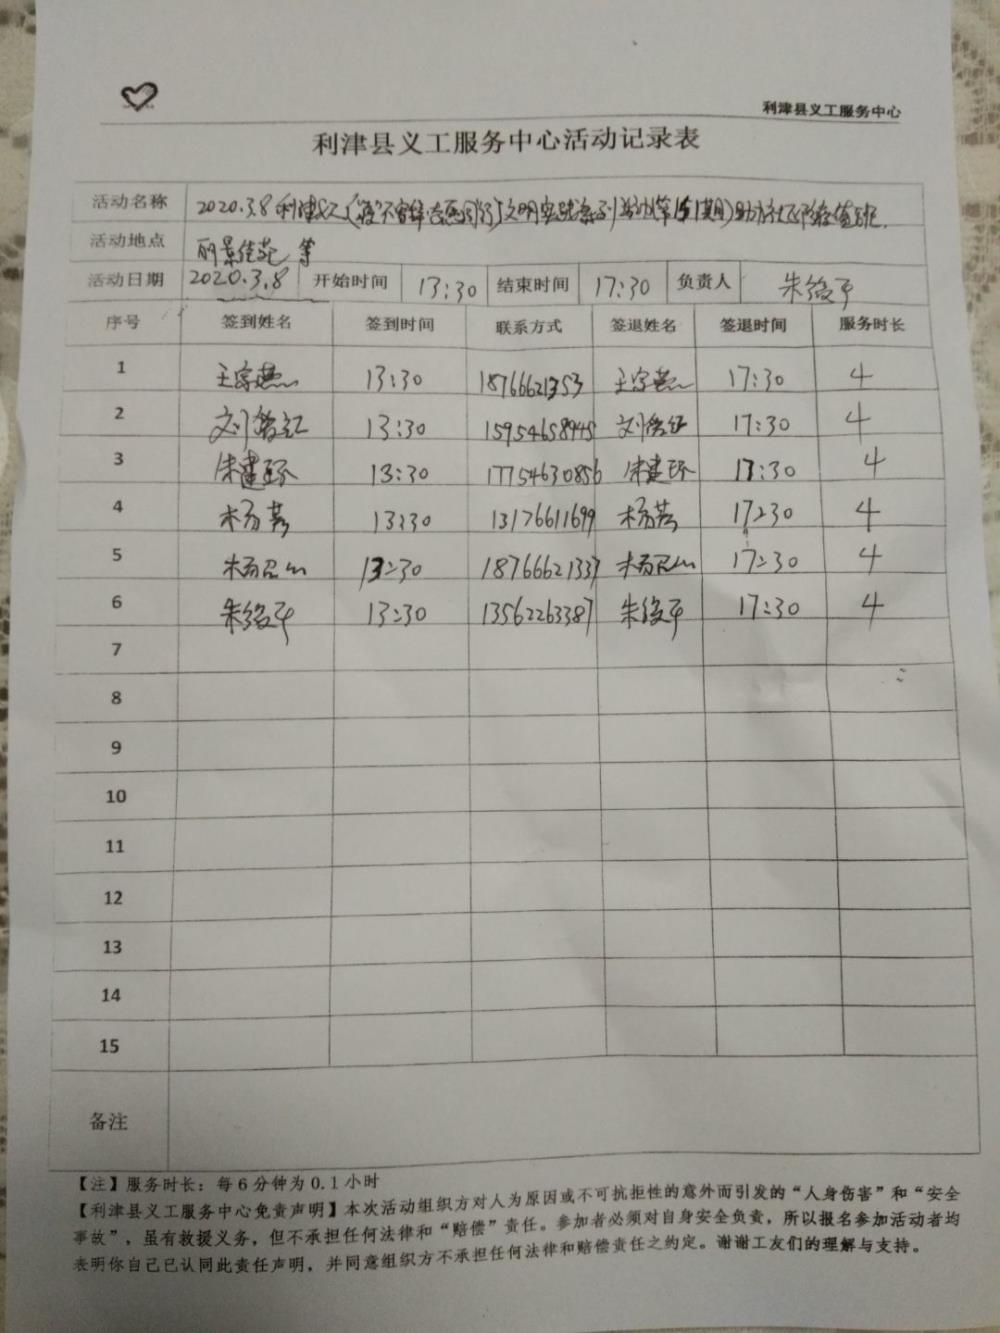 利津县义工服务中心
利津县义工服务中心活动记录表
活动名称 2020.3.8利津义工 文明实践系列活动 助力社区防疫值班.
活动地点 丽景佳苑 等
活动日期 2020.3.8 开始时间 13:30 结束时间 17:30 负责人 朱俊平
序号 签到姓名 签到时间 联系方式 签退姓名 签退时间 服务时长
1 13:30 18766621353 17:30 4
2 13:30 15954658945 17:30 4
3 13:30 17754630856 17:30 4
4 杨芳 13:30 13176611699 杨芳 17:30 4
5 13:30 18766621337 17:30 4
6 朱俊平 13:30 13562263387 朱俊平 17:30 4
7
8
9
10
11
12
13
14
15
备注
【注】服务时长：每6分钟为0.1小时
【利津县义工服务中心免责声明】本次活动组织方对人为原因或不可抗拒性的意外而引发的“人身伤害”和“安全
事故”，虽有救援义务，但不承担任何法律和“赔偿”责任。参加者必须对自身安全负责，所以报名参加活动者均
表明你自己已认同此责任声明，并同意组织方不承担任何法律和赔偿责任之约定。谢谢工友们的理解与支持。